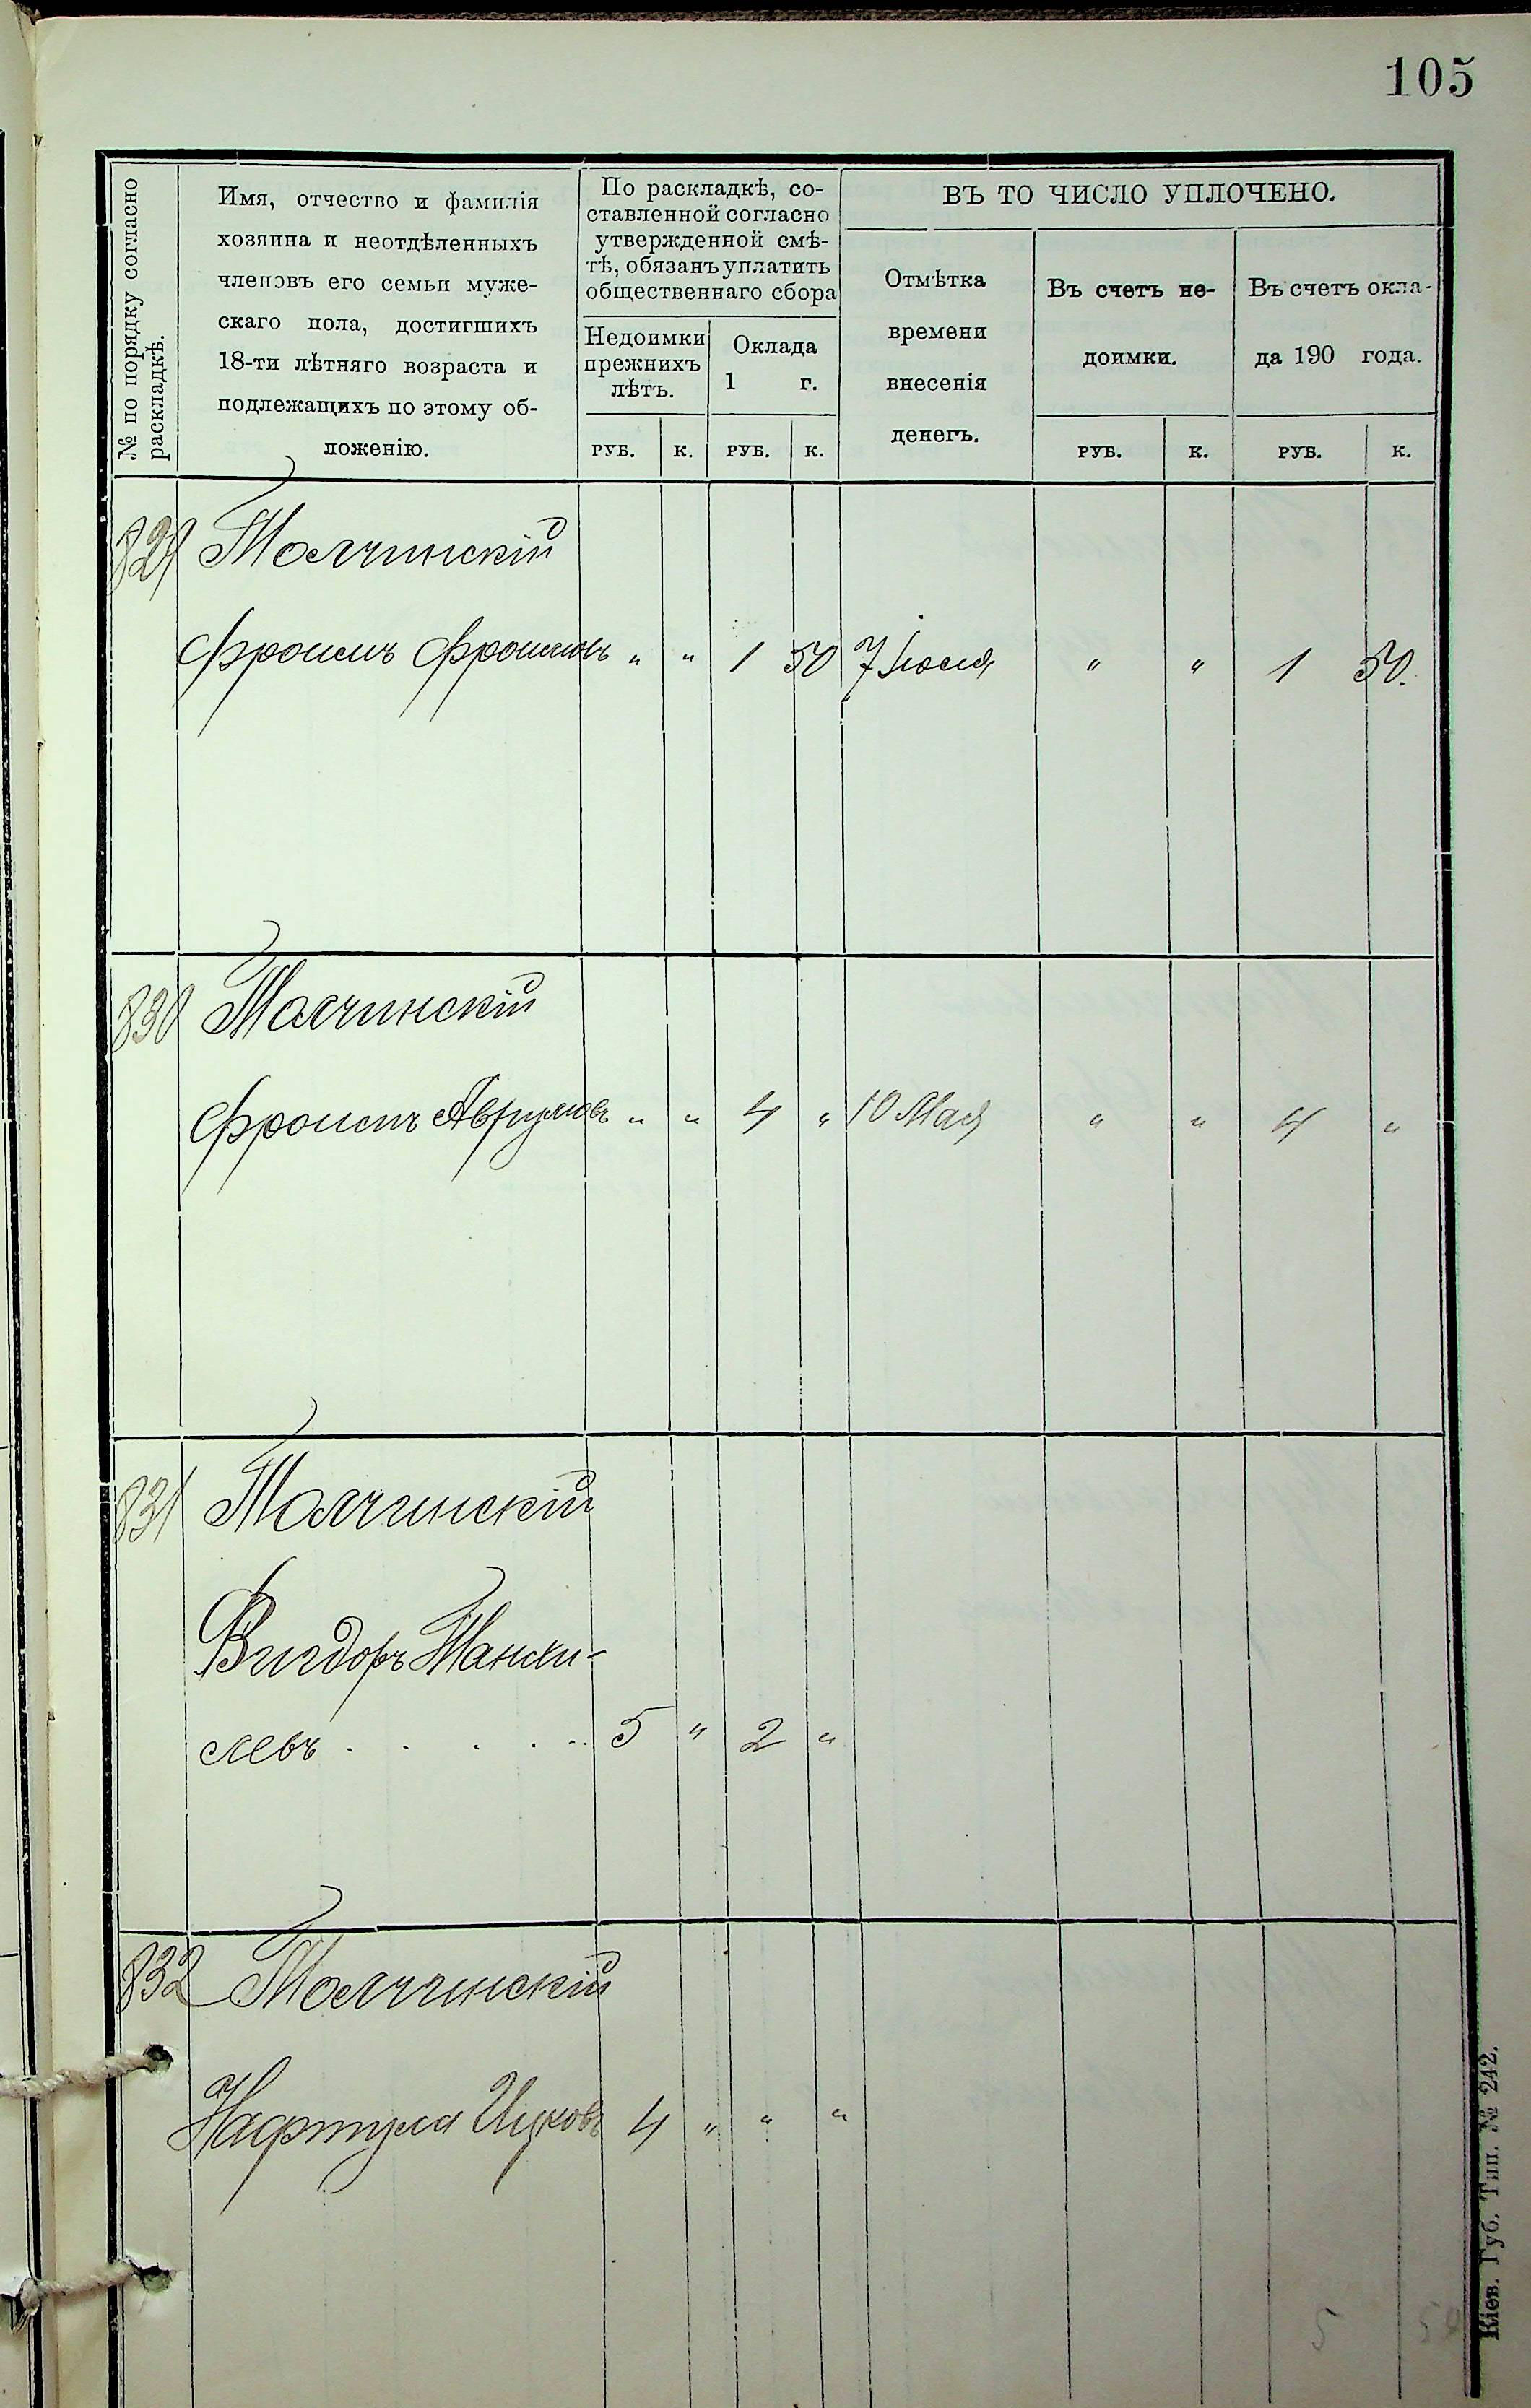 105
№ по порядку согласно
раскладкѣ.
Имя, отчество и фамилія
хозяина и неотдѣленныхъ
членовъ его семьи муже-
скаго пола, достигшихъ
18-ти лѣтняго возраста и
подлежащихъ по этому об-
ложенію.
По раскладкѣ, со-
ставленной согласно
утвержденной смѣ-
тѣ, обязанъ уплатить
общественнаго сбора
Недоимки
прежнихъ
лѣтъ.
Оклада
1 г.
ВЪ ТО ЧИСЛО УПЛОЧЕНО.
Отмѣтка
времени
внесенія
денегъ.
Въ счетъ не-
доимки.
Въ счетъ окла-
да 190 года.
РУБ. К. РУБ. К. РУБ. К. РУБ. К.
829 Толчинскій
Фроимъ Фроимовъ " " 1 50 7 Іюля " " 1 50.
830 Толчинскій
Фроимъ Аврумовъ " " 4 " 10 Мая " " 4 "
831 Толчинскій
Вигдоръ Танхи-
левъ . . . . . 5 " 2 "
832 Толчинскій
Нафтула Ицковъ 4 " " "
5 50
Кіев. Губ. Тип. № 242.